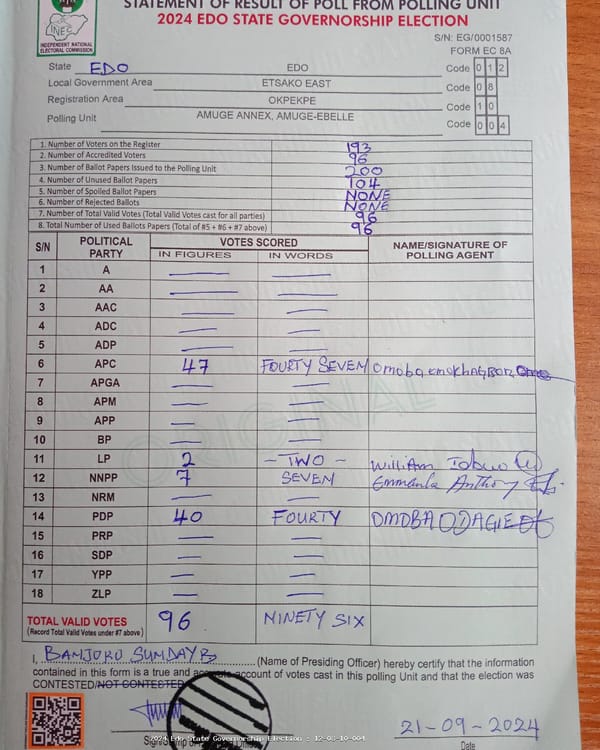 STATEMENT OF RESULT OF POLL FROM POLLING UNIT
2024 EDO STATE GOVERNORSHIP ELECTION
INEC
INDEPENDENT NATIONAL
ELECTORAL COMMISSION
S/N: EG/0001587
FORM EC 8A
State EDO EDO Code 0 1 2
Local Government Area ETSAKO EAST Code 0 8
Registration Area OKPEKPE Code 1 0
Polling Unit AMUGE ANNEX, AMUGE-EBELLE Code 0 0 4
1. Number of Voters on the Register 193
2. Number of Accredited Voters 96
3. Number of Ballot Papers Issued to the Polling Unit 200
4. Number of Unused Ballot Papers 104
5. Number of Spoiled Ballot Papers NONE
6. Number of Rejected Ballots NONE
7. Number of Total Valid Votes (Total Valid Votes cast for all parties) 96
8. Total Number of Used Ballots Papers (Total of #5 + #6 + #7 above) 96
S/N POLITICAL PARTY VOTES SCORED NAME/SIGNATURE OF POLLING AGENT
IN FIGURES IN WORDS
1 A
2 AA
3 AAC
4 ADC
5 ADP
6 APC 47 FOURTY SEVEN
7 APGA
8 APM
9 APP
10 BP
11 LP 2 - TWO - William
12 NNPP 7 SEVEN Anthony
13 NRM
14 PDP 40 FOURTY OMOBA ODAGIE
15 PRP
16 SDP
17 YPP
18 ZLP
TOTAL VALID VOTES 96 NINETY SIX
(Record Total Valid Votes under #7 above)
ORIGINAL
I, BAMJOKO SUNDAY B (Name of Presiding Officer) hereby certify that the information
contained in this form is a true and accurate account of votes cast in this polling Unit and that the election was
CONTESTED/NOT CONTESTED
21-09-2024
Date
2024 Edo State Governorship Election : 12-08-10-004